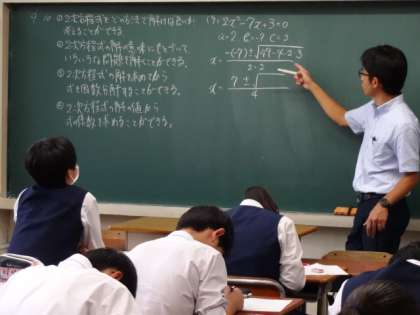 9.10 ① 2次方程式をどの方法で解けば良いか
考えることができる。
② 2次方程式の解の意味にもとづいて、
いろいろな問題を解くことができる。
③ 2次方程式の解を求めてから
式を因数分解することができる。
④ 2次方程式の解の値から
式の係数を求めることができる。
2x²-7x+3=0
a=2, b=-7, c=3
x = -(-7)±√49-4·2·3 / 2·2
x = 7±√ / 4